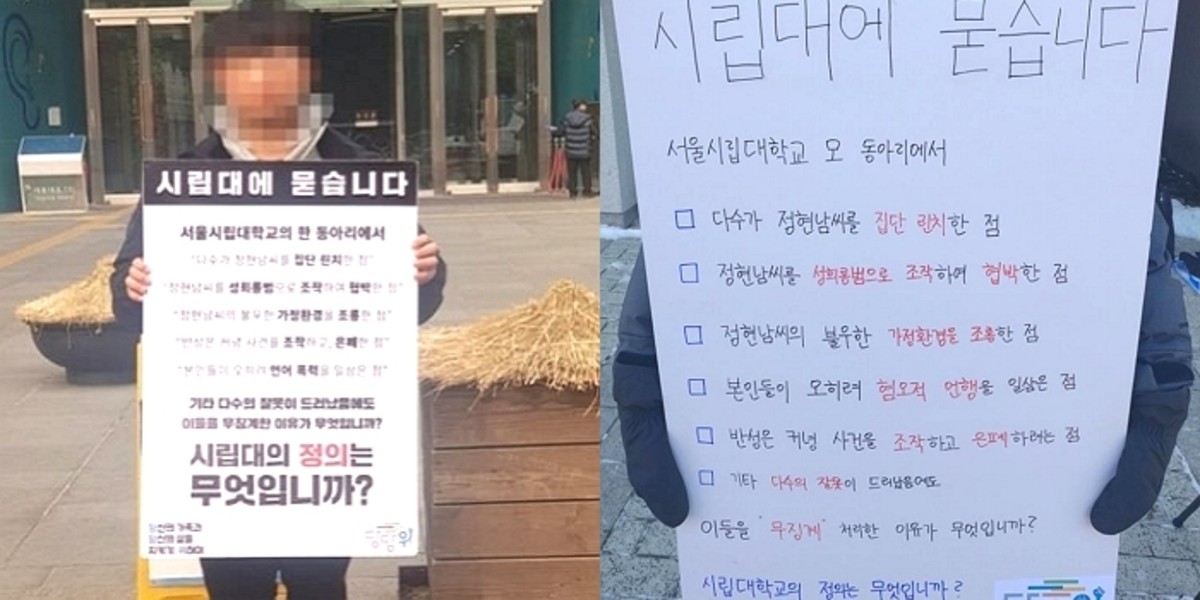 시립대에 묻습니다
서울시립대학교의 한 동아리에서
"다수가 정현남씨를 집단 린치한 점"
"정현남씨를 성희롱범으로 조작하여 협박한 점"
"정현남씨의 불우한 가정환경을 조롱한 점"
"반성은 커녕 사건을 조작하고, 은폐한 점"
"본인들이 오히려 언어 폭력을 일삼은 점"
기타 다수의 잘못이 드러났음에도
이들을 무징계한 이유가 무엇입니까?
시립대의 정의는
무엇입니까?
당신의 가족과
당신의 삶을
지키기 위하여
시립대에 묻습니다
서울시립대학교 모 동아리에서
다수가 정현남씨를 집단 린치한 점
정현남씨를 성희롱범으로 조작하여 협박한 점
정현남씨의 불우한 가정환경을 조롱한 점
본인들이 오히려 혐오적 언행을 일삼은 점
반성은 커녕 사건을 조작하고 은폐하려는 점
기타 다수의 잘못이 드러났음에도
이들을 "무징계" 처리한 이유가 무엇입니까?
시립대학교의 정의는 무엇입니까?